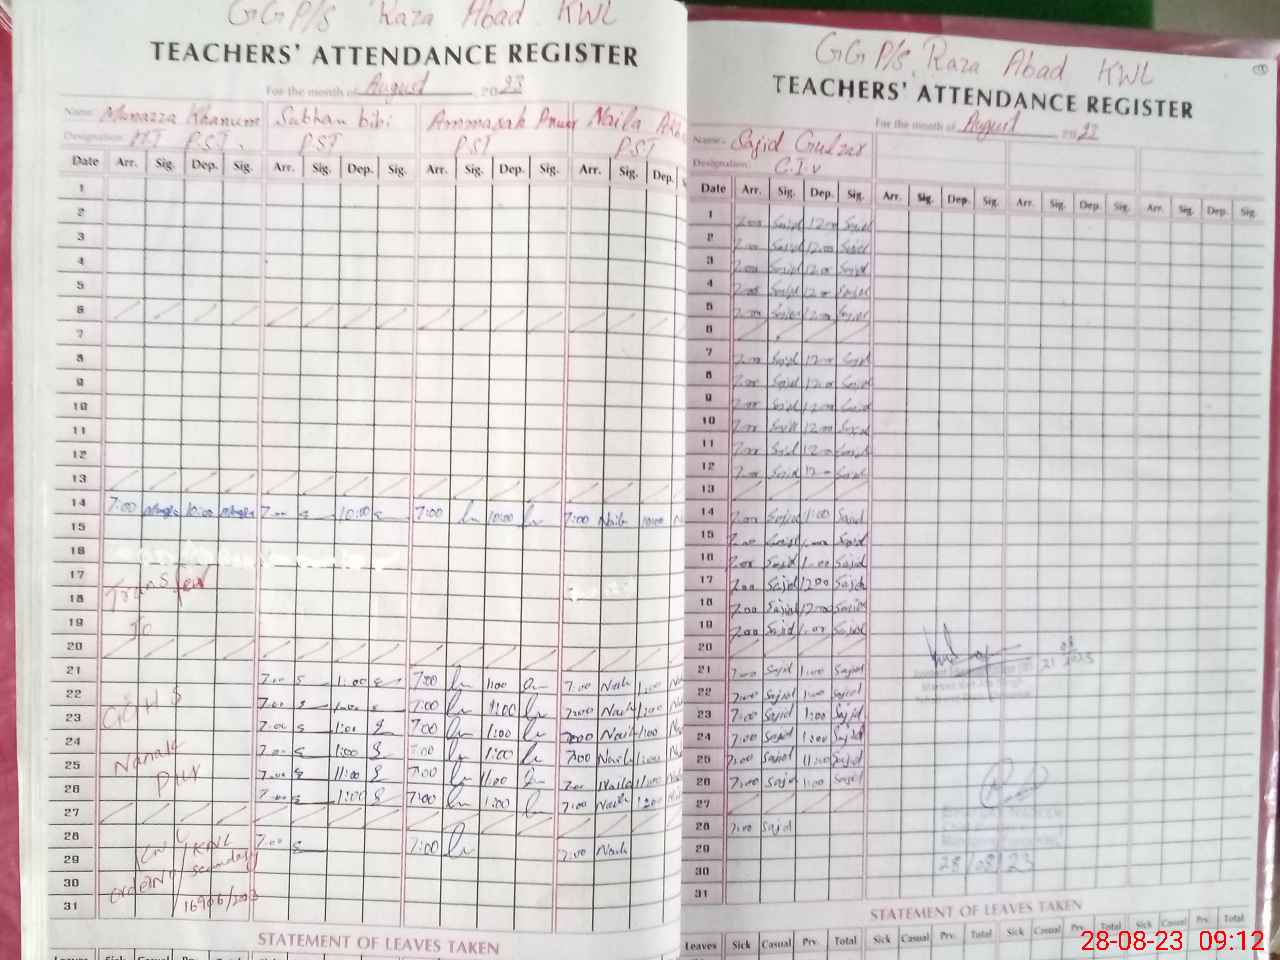 GGP/S Raza Abad KWL
TEACHERS' ATTENDANCE REGISTER
For the month of August 2023
Name: Munazza Khanum Subhan bibi Ammarah Naila
Designation: HT P.S.T. P.S.T P.S.T P.S.T
Date Arr. Sig. Dep. Sig. Arr. Sig. Dep. Sig. Arr. Sig. Dep. Sig. Arr. Sig. Dep.
1
2
3
4
5
6
7
8
9
10
11
12
13
14 7:00 10:00 7:00 10:00 7:00 10:00 7:00 Naila 10:00
15
16
17 Transfer
18
19 To
20
21 7:00 S 1:00 S 7:00 1:00 7:00 Naila 1:00
22 7:00 S 1:00 S 7:00 1:00 7:00 Naila 1:00
23 GGHS 7:00 S 1:00 S 7:00 1:00 7:00 Naila 1:00
24 Nanak 7:00 S 1:00 S 7:00 1:00 7:00 Naila 1:00
25 Pur 7:00 S 11:00 S 7:00 11:00 7:00 Naila 11:00
26 7:00 S 1:00 S 7:00 1:00 7:00 Naila 1:00
27
28 KWL 7:00 S 7:00 7:00 Naila
29 secondary
30 order No
31 16906/2023
STATEMENT OF LEAVES TAKEN
Leaves Sick Casual Prv. Total Sick Casual Prv. Total Sick Casual Prv. Total Sick Casual
GGP/S Raza Abad KWL
TEACHERS' ATTENDANCE REGISTER
For the month of August 2022
Name:- Sajid Gulzar
Designation: C.I.V
Date Arr. Sig. Dep. Sig. Arr. Sig. Dep. Sig. Arr. Sig. Dep. Sig. Arr. Sig. Dep. Sig.
1 7:00 Sajid 12:00 Sajid
2 7:00 Sajid 12:00 Sajid
3 7:00 Sajid 12:00 Sajid
4 7:00 Sajid 12:00 Sajid
5 7:00 Sajid 12:00 Sajid
6
7 7:00 Sajid 12:00 Sajid
8 7:00 Sajid 12:00 Sajid
9 7:00 Sajid 12:00 Sajid
10 7:00 Sajid 12:00 Sajid
11 7:00 Sajid 12:00 Sajid
12 7:00 Sajid 12:00 Sajid
13
14 7:00 Sajid 1:00 Sajid
15 7:00 Sajid 1:00 Sajid
16 7:00 Sajid 1:00 Sajid
17 7:00 Sajid 12:00 Sajid
18 7:00 Sajid 12:00 Sajid
19 7:00 Sajid 1:00 Sajid
20
21 7:00 Sajid 1:00 Sajid 21
22 7:00 Sajid 1:00 Sajid
23 7:00 Sajid 1:00 Sajid
24 7:00 Sajid 1:00 Sajid
25 7:00 Sajid 11:00 Sajid
26 7:00 Sajid 1:00 Sajid
27
28 7:00 Sajid
29 28/08/23
30
31
STATEMENT OF LEAVES TAKEN
Leaves Sick Casual Prv. Total Sick Casual Prv. Total Sick Casual Prv. Total Sick Casual Prv. Total
28-08-23 09:12